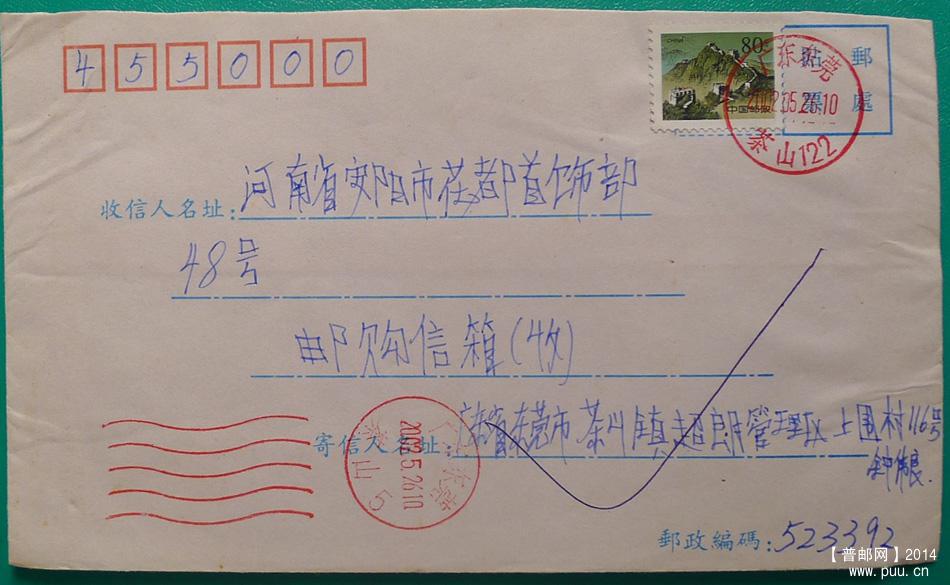 455000
CHINA
80分
中国邮政
貼郵
票處
东莞
2002.05.26.10
茶山122
收信人名址：河南省安阳市花都首饰部
48号
邮购信箱（收）
寄信人名址：东莞市茶山镇超朗管理区上围村116号
东莞
2002.5.26.10
茶山
郵政編碼：523392
【普邮网】2014
www.puu.cn